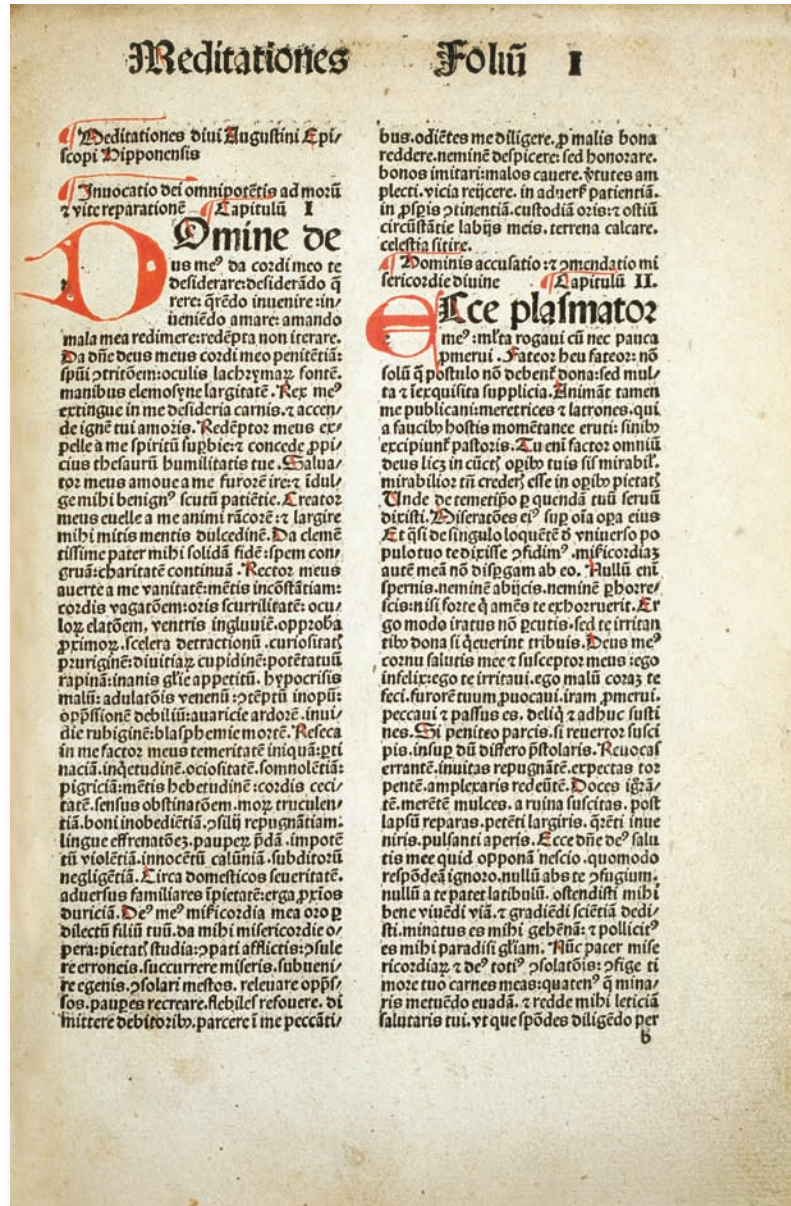 Meditationes Foliū I
Meditationes diui Augustini Epi/
scopi Hipponensis
Inuocatio dei omnipotētis ad morū
⁊ vite reparationē Capitulū I
Domine de
us meꝰ da cordi meo te
desiderare: desiderādo q̄
rere: q̄rēdo inuenire: in/
ueniēdo amare: amando
mala mea redimere: redēpta non iterare.
Da dn̄e deus meus cordi meo penitētiā:
spūi ꝯtritōem: oculis lachrymaꝝ fontē.
manibus elemosyne largitatē. Rex meꝰ
extingue in me desideria carnis. ⁊ accen/
de ignē tui amoris. Redēptor meus ex/
pelle a me spiritū suꝑbie: ⁊ concede ꝓpi/
cius thesaurū humilitatis tue. Salua/
tor meus amoue a me furorē ire: ⁊ īdul/
ge mihi benignꝰ scutū patiētie. Creator
meus euelle a me animi rācorē: ⁊ largire
mihi mitis mentis dulcedinē. Da clemē
tissime pater mihi solidā fidē: spem con/
gruā: charitatē continuā. Rector meus
auerte a me vanitatē: mētis incōstātiam:
cordis vagatōem: oris scurrilitatē: ocu/
loꝝ elatōem. ventris ingluuiē. opprobꝛa
ꝓximoꝝ. scelera detractionū. curiositatꝭ
pruriginē: diuitiaꝝ cupidinē: potētatuū
rapinā: inanis gl̄ie appetitū. hypocrisis
malū: adulatōis venenū: ꝯtēptū inopū:
opp̄ssionē debiliū: auaricie ardorē. inui/
die rubiginē: blasphemie mortē. Reseca
in me factor meus temeritatē iniquā: ꝑti
naciā. inq̄etudinē. ociositatē. somnolētiā:
pigriciā: mētis hebetudinē: cordis ceci/
tatē. sensus obstinatōem. moꝝ truculen/
tiā. boni inobediētiā. ꝯsilij repugnātiam:
lingue effrenatōeꝫ. pauꝑeꝝ p̄dā. impotē
tū violētiā. innocētū calūniā. subditorū
negligētiā. Circa domesticos seueritatē.
adversus familiares īpietatē: erga ꝓxīos
duriciā. Deꝰ meꝰ mīscordia mea oro ꝑ
dilectū filiū tuū. da mihi misericordie o/
pera: pietatꝭ studia: ꝯpati afflictis: ꝯsule
re erroneis. succurrere miseris. subueni/
re egenis. ꝯsolari mestos. releuare opp̄s/
sos. pauꝑes recreare. flebiles refouere. di
mittere debitoribꝰ. parcere ī me peccāti/
bus. odiētes me diligere. ꝓ malis bona
reddere. neminē despicere: sed honorare.
bonos imitari: malos cauere. v̓tutes am
plecti. vicia reijcere. in aduerẜ patientiā.
in ꝓsꝑis ꝯtinentiā. custodiā oris: ⁊ ostiū
circūstātie labijs meis. terrena calcare.
celestia sitire.
Hominis accusatio: ⁊ ꝯmendatio mi
sericordie diuine Capitulū II.
Ecce plasmator
meꝰ: ml̄ta rogaui cū nec pauca
ꝓmerui. Fateor heu fateor: nō
solū q̄ postulo nō debent᷑ dona: sed mul/
ta ⁊ īexquisita supplicia. Animāt tamen
me publicani: meretrices ⁊ latrones. qui
a faucibꝰ hostis momētanee eruti: sinibꝰ
excipiunt᷑ pastoris. Tu eni factor omniū
deus licꝫ in cūctꝭ oꝑibꝰ tuis sis mirabil̓.
mirabilior tn̄ crederꝭ esse in oꝑibꝰ pietatꝭ
Unde de temetip̄o ꝑ quendā tuū seruū
dixisti. Miseratōes eiꝰ suꝑ oīa oꝑa eius
Et q̄si de singulo loquētē d̓ vniuerso po
pulo tuo te dixisse ꝯfidimꝰ. mīscordiaꝫ
autē meā nō disꝑgam ab eo. Nullū eni
spernis. neminē abijcis. neminē ꝑhorre/
scis: nisi forte q̄ amēs te exhorruerit. Er
go modo iratus nō ꝑcutis. sed te irritan
tibꝰ dona si q̄euerint tribuis. Deus meꝰ
cornu salutis mee ⁊ susceptor meus: ego
infelix: ego te irritaui. ego malū coraꝫ te
feci. furorē tuum ꝓuocaui. iram ꝓmerui.
peccaui ⁊ passus es. deliq̄ ⁊ adhuc susti
nes. Si peniteo parcis. si reuertor susci
pis. insuꝑ dū differo p̄stolaris. Reuocas
errantē. inuitas repugnātē. expectas tor
pentē. amplexaris redeūtē. Doces igr̄ā/
tē. merētē mulces. a ruina suscitas. post
lapsū reparas. petēti largiris. q̄rēti inue
niris. pulsanti aperis. Ecce dn̄e deꝰ salu
tis mee quid opponā nescio. quomodo
respōdeā ignoro. nullū abs te ꝯfugium.
nullū a te patet latibulū. ostendisti mihi
bene viuēdi viā. ⁊ gradiēdi sciētiā dedi/
sti. minatus es mihi gehēnā: ⁊ pollicitꝰ
es mihi paradisi gl̄iam. Nūc pater mise
ricordiaꝝ ⁊ deꝰ totiꝰ ꝯsolatōis: ꝯfige ti
more tuo carnes meas: quatenꝰ q̄ mina/
ris metuēdo euadā. ⁊ redde mihi leticiā
salutaris tui. vt que spōdes diligēdo per
b